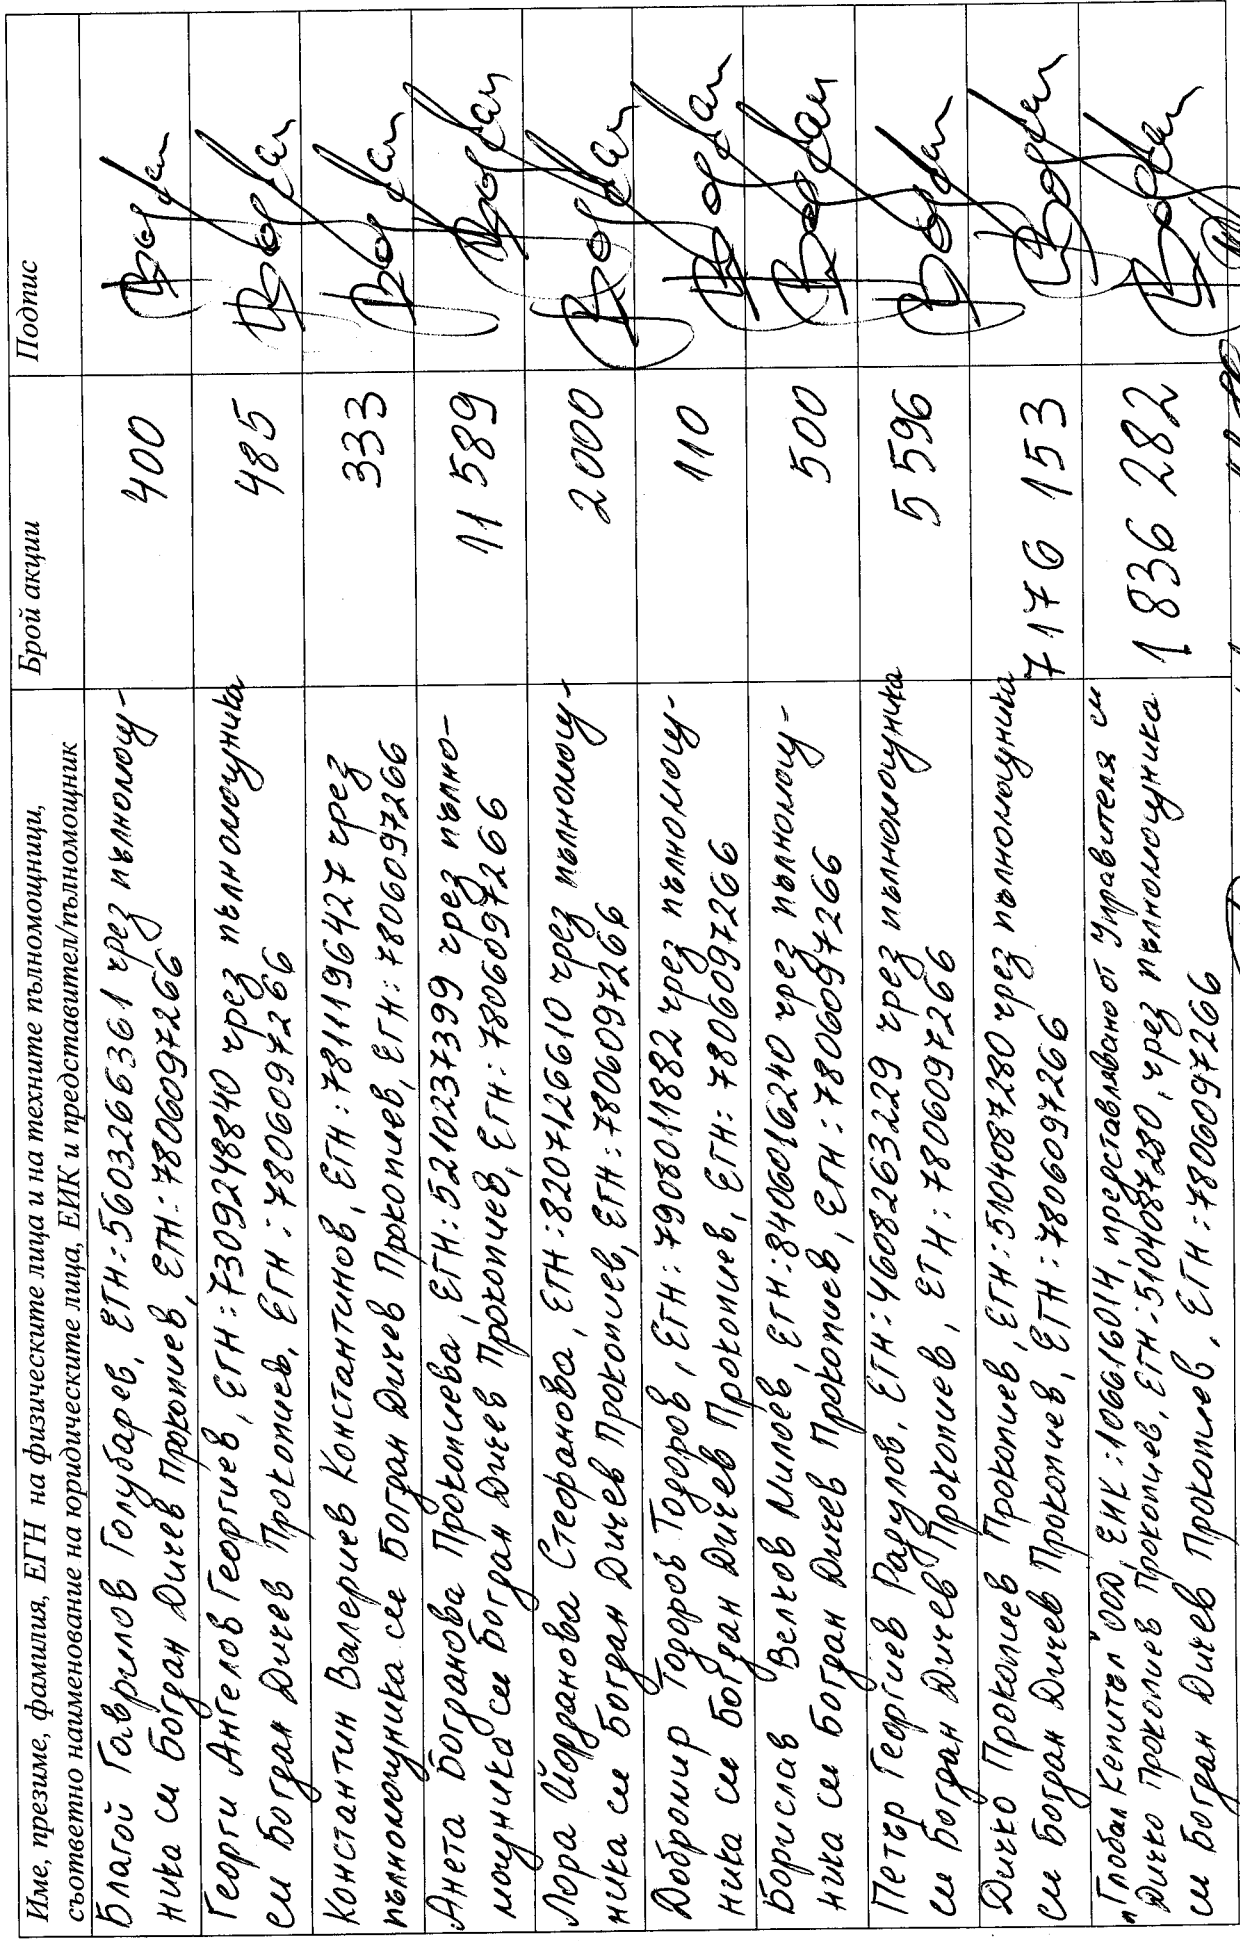 Име, презиме, фамилия, ЕГН на физическите лица и на техните пълномощници,
съответно наименование на юридическите лица, ЕИК и представител/пълномощник
Брой акции
Подпис
Благой Гаврилов Голубарев, ЕГН: 5603266361 чрез пълномощ-
ника си Богдан Дичев Прокопиев, ЕГН: 7806097266
400
Богдан
Георги Ангелов Георгиев, ЕГН: 7309248840 чрез пълномощника
си Богдан Дичев Прокопиев, ЕГН: 7806097266
485
Богдан
Константин Валериев Константинов, ЕГН: 7811196427 чрез
пълномощника си Богдан Дичев Прокопиев, ЕГН: 7806097266
333
Богдан
Анета Богданова Прокопиева, ЕГН: 5210237399 чрез пълно-
мощника си Богдан Дичев Прокопиев, ЕГН: 7806097266
11 589
Богдан
Лора Йорданова Стефанова, ЕГН: 8207126610 чрез пълномощ-
ника си Богдан Дичев Прокопиев, ЕГН: 7806097266
2000
Богдан
Добромир Тодоров Тодоров, ЕГН: 7908011882 чрез пълномощ-
ника си Богдан Дичев Прокопиев, ЕГН: 7806097266
110
Богдан
Борислав Велков Милоев, ЕГН: 8406016240 чрез пълномощ-
ника си Богдан Дичев Прокопиев, ЕГН: 7806097266
500
Богдан
Петър Георгиев Радулов, ЕГН: 4608263229 чрез пълномощника
си Богдан Дичев Прокопиев, ЕГН: 7806097266
5 596
Богдан
Дичко Прокопиев Прокопиев, ЕГН: 5104087280 чрез пълномощника
си Богдан Дичев Прокопиев, ЕГН: 7806097266
7176 153
Богдан
"Глобал Кепитъл" ООД, ЕИК: 106616014, представлявано от Управителя си
Дичко Прокопиев Прокопиев, ЕГН: 5104087280, чрез пълномощника
си Богдан Дичев Прокопиев, ЕГН: 7806097266
1 836 282
Богдан